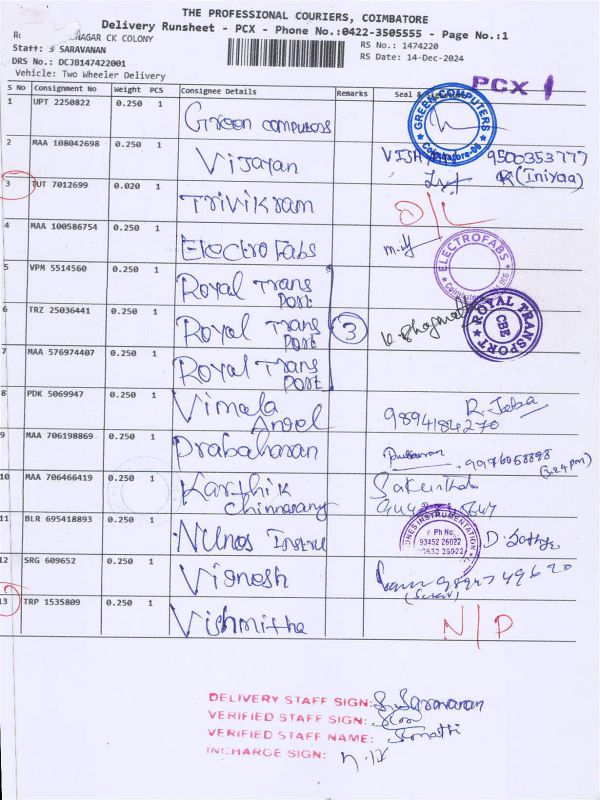 THE PROFESSIONAL COURIERS, COIMBATORE
Delivery Runsheet - PCX - Phone No.:0422-3505555 - Page No.:1
NAGAR CK COLONY
RS No.: 1474220
Staff: S SARAVANAN
RS Date: 14-Dec-2024
DRS No.: DCJB147422001
Vehicle: Two Wheeler Delivery
PCX 1
S No Consignment No Weight PCS Consignee Details Remarks Seal &
1 UPT 2250822 0.250 1 Green computers GREEN COMPUTERS Coimbatore-06
2 MAA 108042698 0.250 1 Vijayan 9500353777
(Iniyaa)
3 TUT 7012699 0.020 1 Trivikram O/L
4 MAA 100586754 0.250 1 Electro Fabs ELECTROFABS
5 VPM 5514560 0.250 1 Royal Trans Port
6 TRZ 25036441 0.250 1 Royal Trans Port 3 ROYAL TRANSPORT CBE
7 MAA 576974407 0.250 1 Royal Trans Port
8 PDK 5069947 0.250 1 Vimala Angel R. Jeba
9894184270
9 MAA 706198869 0.250 1 Prabaharan
10 MAA 706466419 0.250 1 Karthik Chinnasamy
11 BLR 695418893 0.250 1 Nunes Instru NES INSTRUMENTATION
Ph No.
93452 26022
26022
12 SRG 609652 0.250 1 Vignesh
13 TRP 1535809 0.250 1 Vishmitha N/P
DELIVERY STAFF SIGN: S. Saravanan
VERIFIED STAFF SIGN:
VERIFIED STAFF NAME:
INCHARGE SIGN: